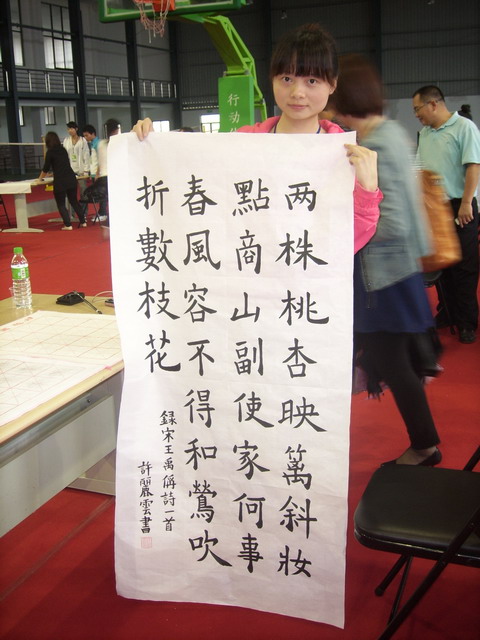 两株桃杏映篱斜妝
點商山副使家何事
春風容不得和鶯吹
折數枝花
録宋王禹偁詩一首
許麗雲書
行动